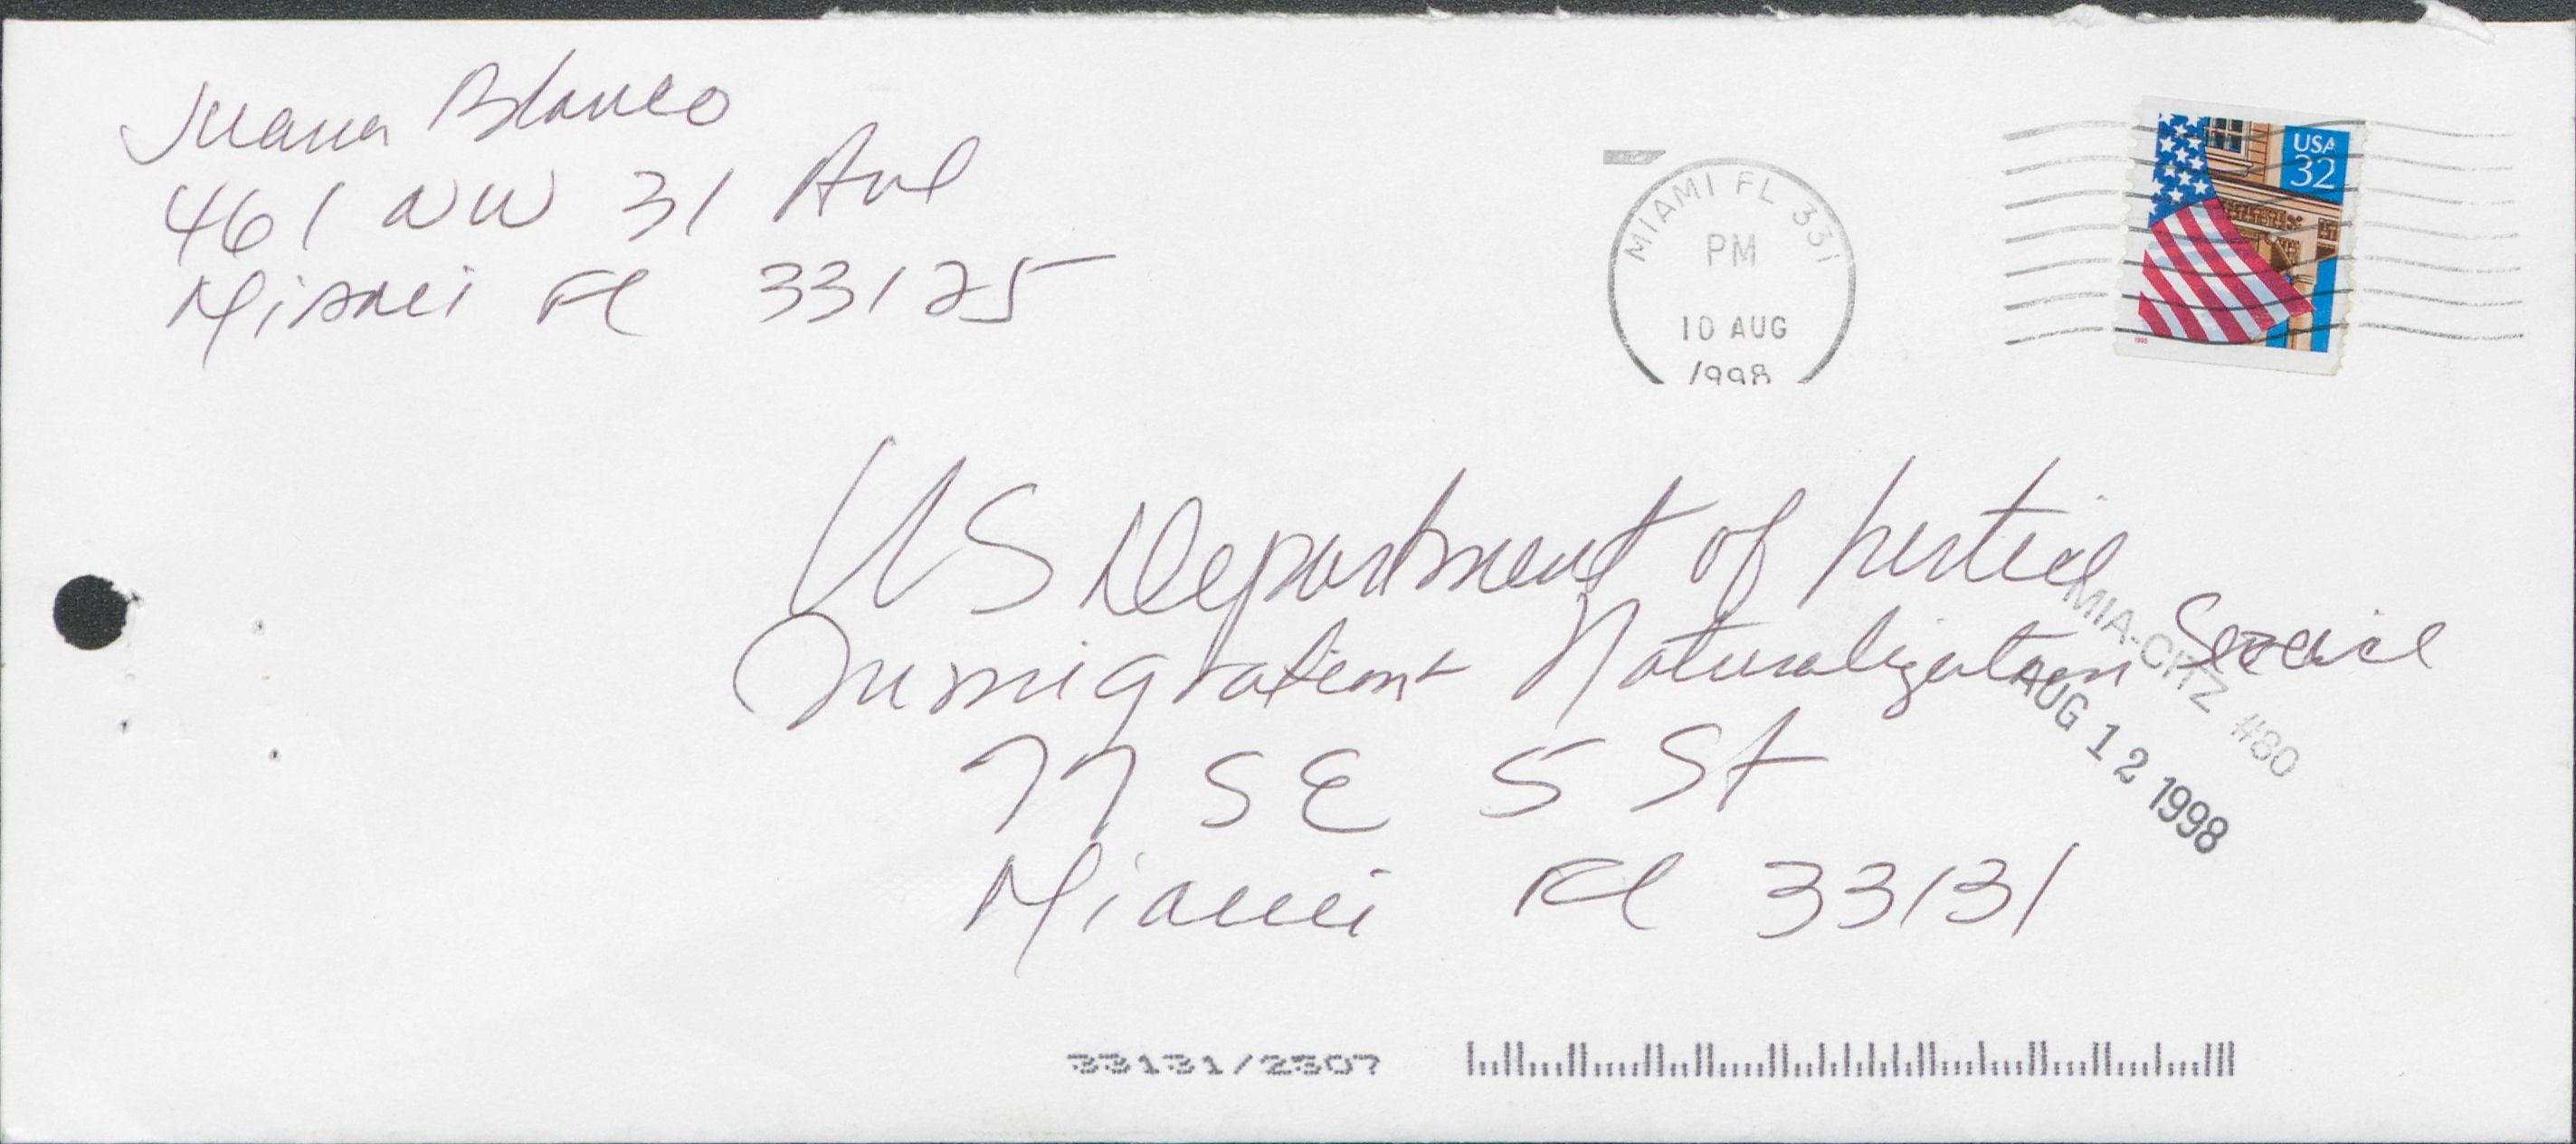 Juana Blanco
461 NW 31 Ave
Miami Fl 33125
MIAMI FL 331
PM
10 AUG
1998
USA
32
1995
US Department of Justice
Immigration + Naturalization Service
77 SE 5 St
Miami Fl 33131
MIA-CITZ #80
AUG 12 1998
33131/2507